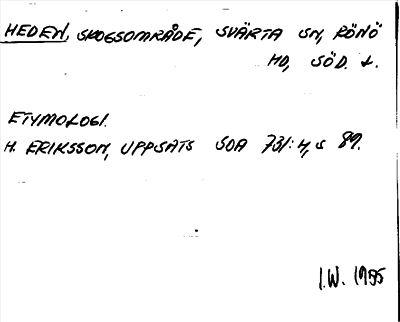 HEDEN, SKOGSOMRÅDE, SVÄRTA SN, RÖNÖ
HD, SÖD. L.
ETYMOLOGI.
H. ERIKSSON, UPPSATS SOA 731:4, S 89.
I.W. 1955